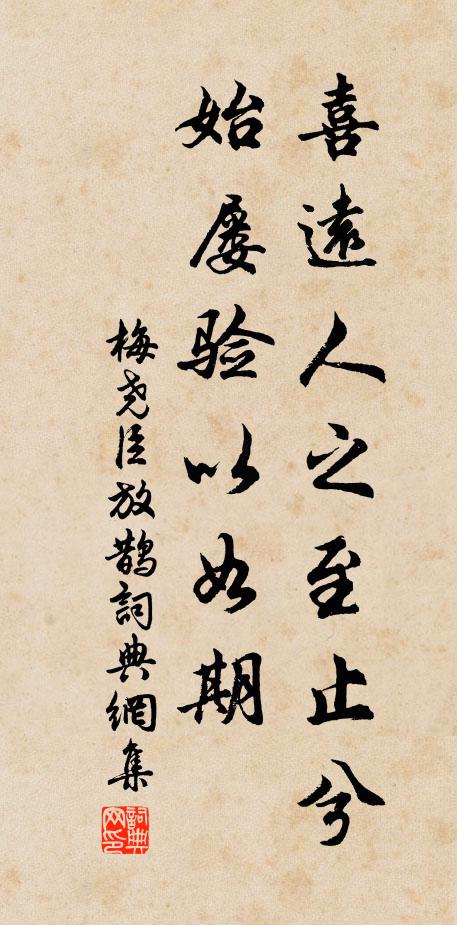 喜遠人之至止兮
始屡验以如期
梅尧臣放鹊詞典網集
詞典网印